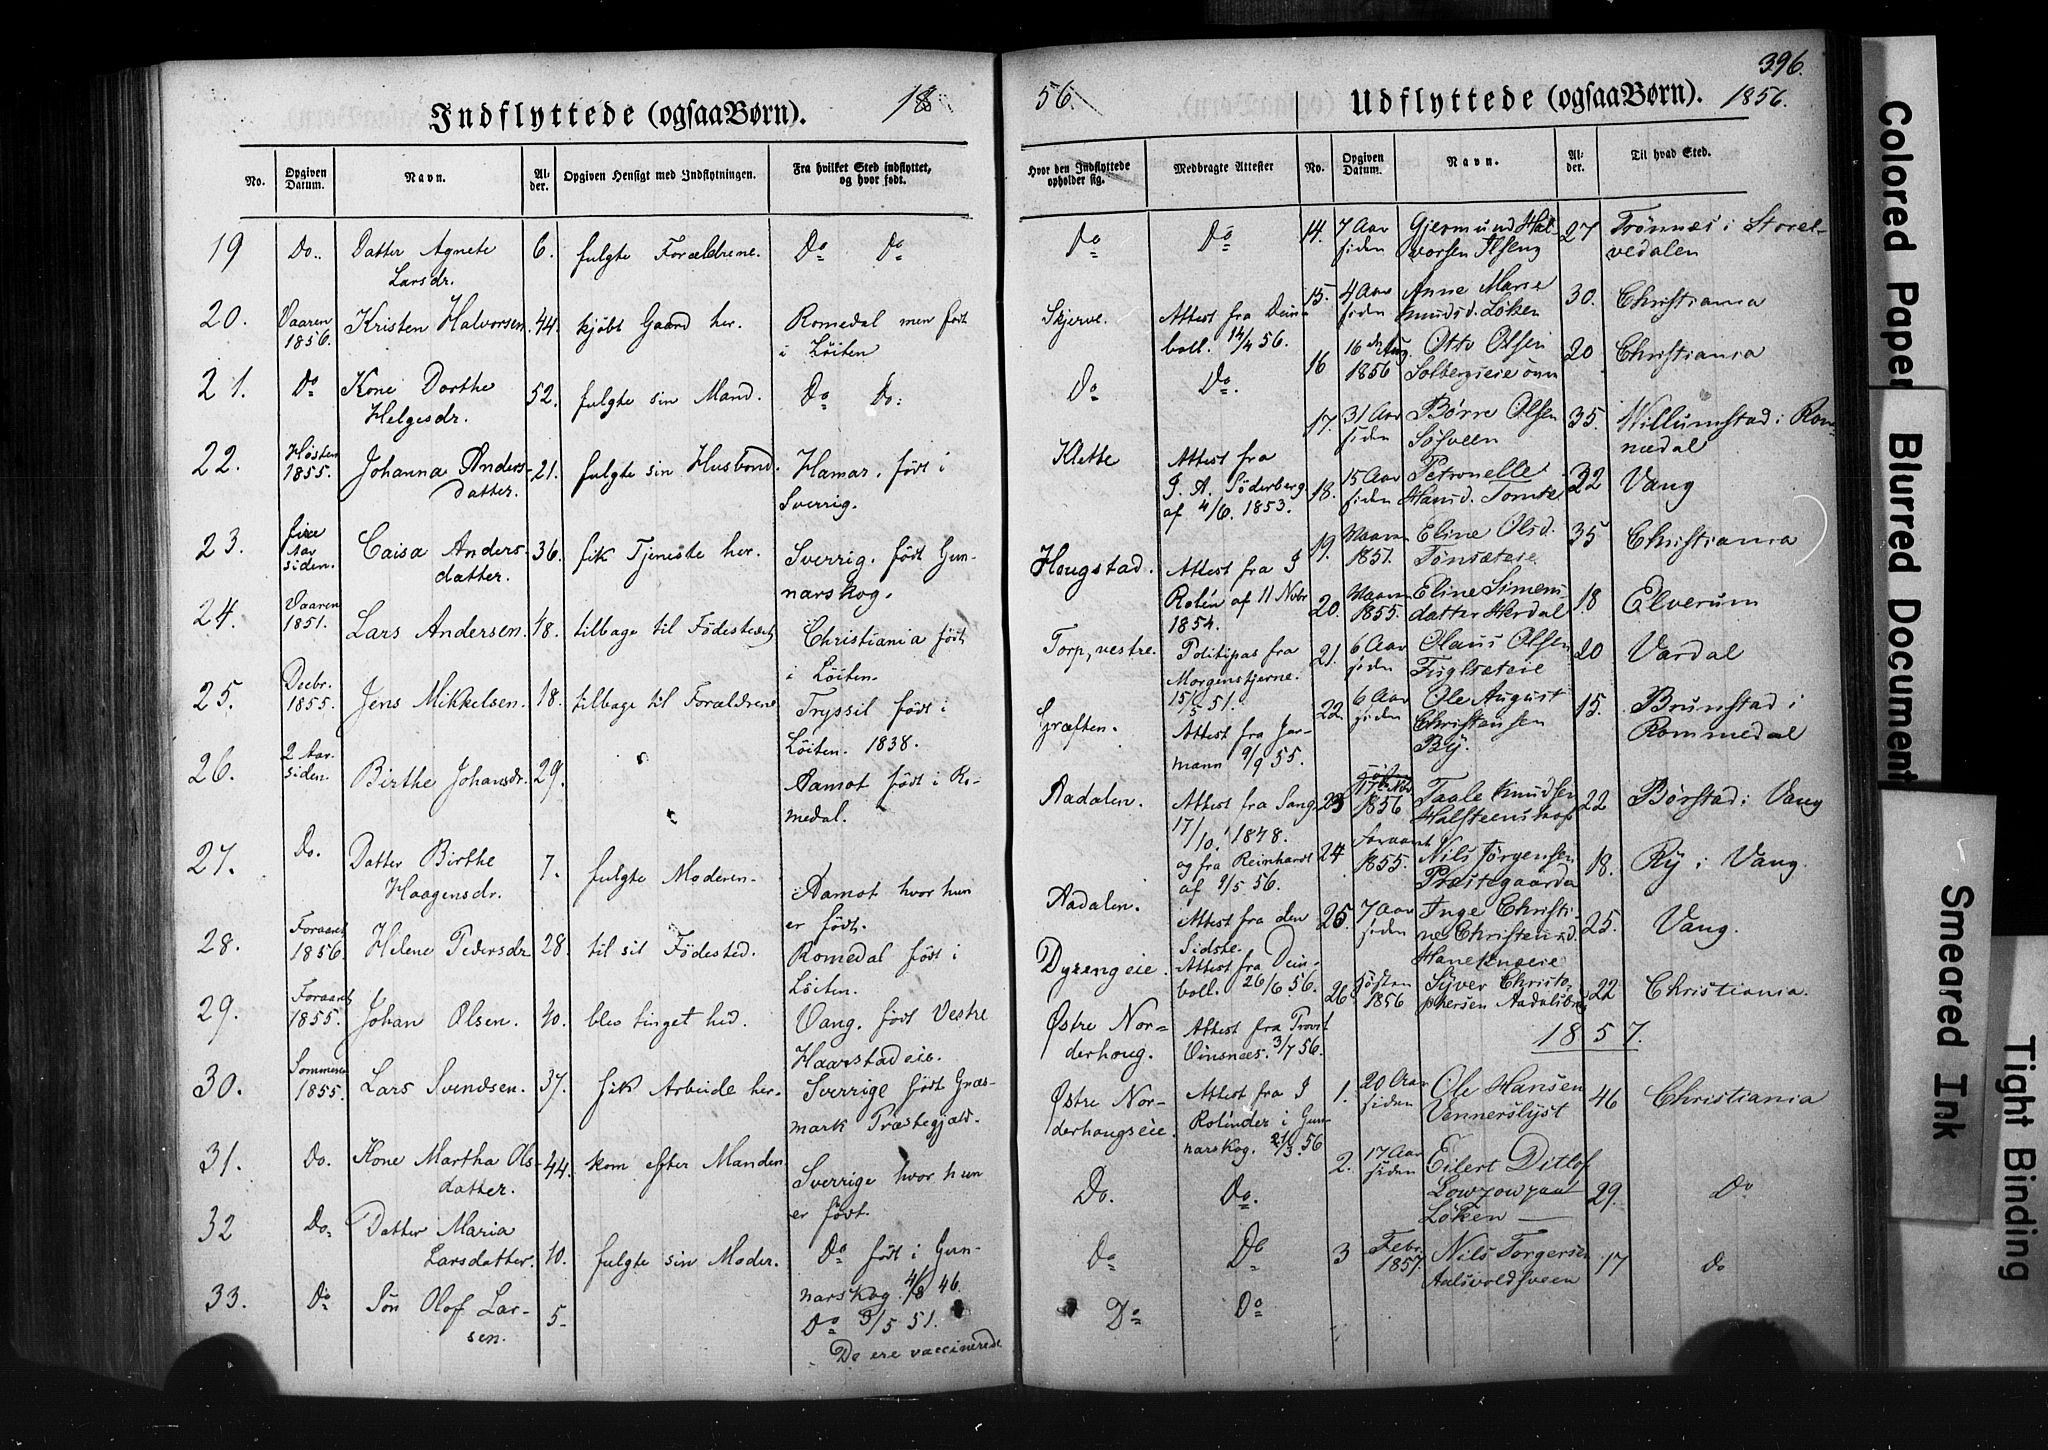 396.
Indflyttede (ogsaa Børn). 18
56.
Udflyttede (ogsaa Børn). 1856.
No. Opgiven Datum. Navn. Alder. Opgiven Hensigt med Indflytningen. Fra hvilket Sted indflyttet, og hvor født.
Hvor den Indflyttede opholder sig. Medbragte Attester
No. Opgiven Datum. Navn. Alder. Til hvad Sted.
19 Do. Datter Agnete Larsdr. 6. fulgte Forældrene. Do Do Do Do
20. Vaaren 1856. Kristen Halvorsen 44. kjøbt Gaard her. Romedal men født i Löiten Skjerve. Attest fra Deinboll. 14/4 56.
21. Do Kone Dorthe Helgesdr. 52. fulgte sin Mand. Do Do. Do Do.
22. Høsten 1855. Johanna Andersdatter. 21. fulgte sin Husbond. Hamar. født i Sverrig. Klette Attest fra J. A. Söderberg af 4/6. 1853.
23. fire Aar siden. Caisa Andersdatter. 36. fik Tjeneste her. Sverrig. født Gunnarskog. Hougstad. Attest fra J Rolén af 11 Nobr 1854.
24. Vaaren 1851. Lars Andersen. 48. tilbage til Födestedet Christiania født i Löiten. Torp, vestre. Politipas fra Morgenstjerne. 15/5 51.
25. Decbr. 1855. Jens Mikkelsen. 18. tilbage til Forældrene Tryssil født i Löiten. 1838. Græften. Attest fra Jarmann 9/9 55.
26. 2 Aar siden. Birthe Johansdr. 29. Aamot født i Romedal. Aadalen. Attest fra Sang 17/10. 1848. og fra Reinhardt af 9/5 56.
27. Do. Datter Birthe Haagensdr. 7. fulgte Moderen. Aamot hvor hun er født. Aadalen. Attest fra den Sidste.
28. Foraaret 1856 Helene Pedersdr 28. til sit Födested. Romedal født i Löiten. Dyrengeie. Attest fra Deinboll. 26/6 56.
29. Foraaret 1855. Johan Olsen. 40. blev tinget hed. Vang. født Vestre Haarstadeie. Østre Norderhoug. Attest fra Provst Vinsnes. 3/7 56.
30. Sommeren 1855. Lars Svendsen. 37. fik Arbeide her. Sverrige født Græsmark Præstegjæld. Østre Norderhougseie. Attest fra J Rolinder i Gunnarskog. 21/3. 56
31. Do. Kone Martha Olsdatter. 44. kom efter Manden Sverrige hvor hun er født. Do. Do.
32 Do. Datter Maria Larsdatter. 10. fulgte sin Moder. Do født i Gunnarskog 4/8 46. Do Do
33. Do Søn Olof Larsen. 5- Do 3/5 51. Do Do
De ere vaccinerede
14. 7 Aar siden Gjermund Halvorsen Ilseng 27 Trönnæs i Storelvedalen
15. 4 Aar siden Anne Marie Knudsd. Löken 30. Christiania
16 16 de Aug. 1856 Otto Olsen Solbergseie övre 20 Christiania
17. 31 Aar siden Børre Olsen Sösveen 35. Willumstad i Romedal
18. 15 Aar siden Petronelle Hansd. Tomte 32 Vang
19. Vaaren 1851. Eline Olsd. Tönsæteie 35 Christiania
20. Vaaren 1855. Eline Simensdatter Herdal 18 Elverum
21. 6 Aar siden Olaus Olsen Fuglsæteie 20 Vardal
22. 6 Aar siden Ole August Christansen Bÿ. 15. Brunstad i Rommedal
23 1856 Taale Knudsen Halsteenshof 22 Börstad i Vang
24 Foraaret 1855. Nils Jörgensen Præstegaarden 18. Rÿ i Vang.
25. 7 Aar siden Inge Christine Christensd. Hanekneeie 25. Vang.
26 Høsten 1856 Syver Christophersen Aadalsbrug 22 Christiania.
1857.
1. 20 Aar siden Ole Hansen Vennerslÿst 46 Christiania
2. 17 Aar siden Eilert Ditlof Lowzow paa Löken 29. Do
3 Febr. 1857 Nils Torgersen Aalsvoldsveen 17 Do
Colored Paper
Blurred Document
Smeared Ink
Tight Binding